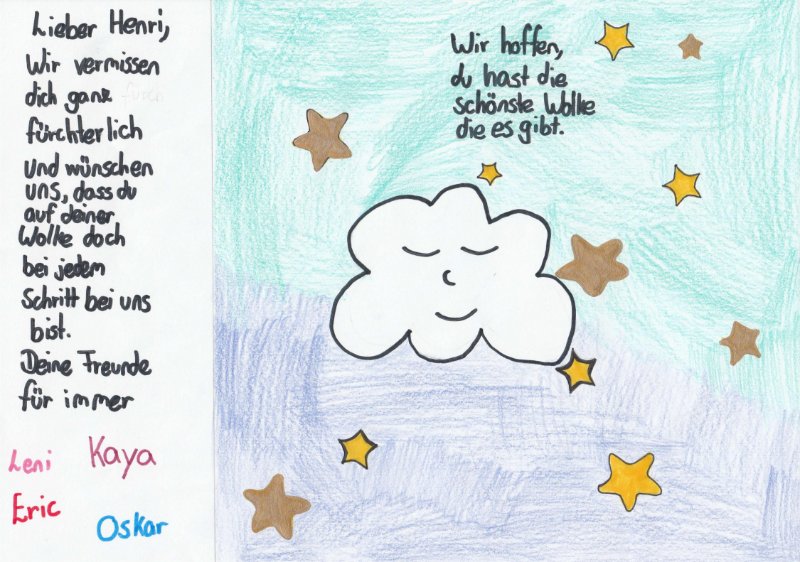 Lieber Henri,
Wir vermissen
dich ganz
fürchterlich
und wünschen
uns, dass du
auf deiner
Wolke doch
bei jedem
Schritt bei uns
bist.
Deine Freunde
für immer
Leni Kaya
Eric Oskar
Wir hoffen,
du hast die
schönste Wolke
die es gibt.